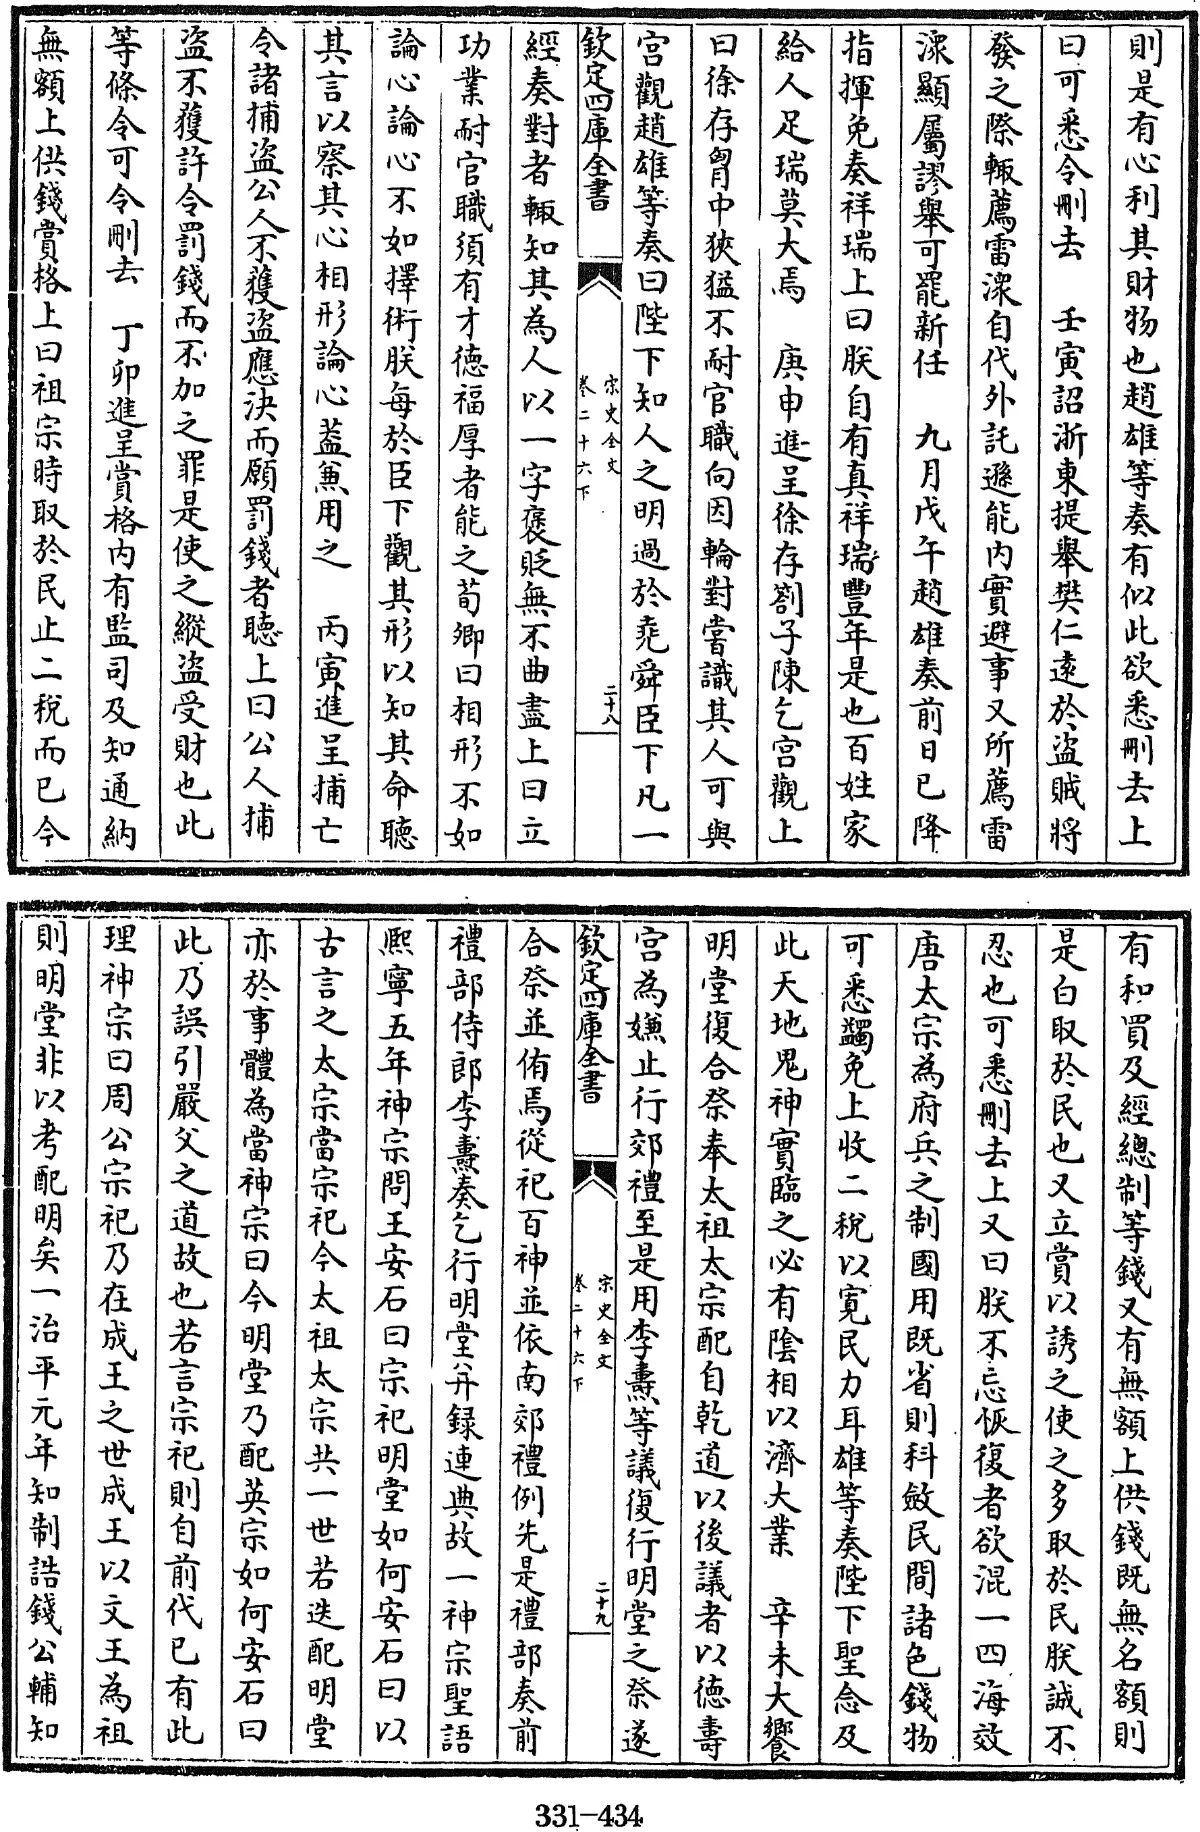 則是有心利其財物也趙雄等奏有似此欲悉刪去上
曰可悉令刪去　壬寅詔浙東提舉樊仁逺於盜賊將
發之際輙薦雷潨自代外託遜能内實避事又所薦雷
潨顯屬謬舉可罷新任　九月戊午趙雄奏前日已降
指揮免奏祥瑞上曰朕自有真祥瑞豐年是也百姓家
給人足瑞莫大焉　庚申進呈徐存劄子陳乞宮觀上
曰徐存胷中狹猛不耐官職向因輪對嘗識其人可與
宮觀趙雄等奏曰陛下知人之明過於堯舜臣下凡一
欽定四庫全書
宋史全文
卷二十六下
二十八
經奏對者輙知其為人以一字褒貶無不曲盡上曰立
功業耐官職須有才德福厚者能之荀卿曰相形不如
論心論心不如擇術朕每於臣下觀其形以知其命聽
其言以察其心相形論心葢兼用之　丙寅進呈捕亡
令諸捕盜公人不獲盜應決而願罰錢者聽上曰公人捕
盜不獲許令罰錢而不加之罪是使之縱盜受財也此
等條令可令刪去　丁卯進呈賞格内有監司及知通納
無額上供錢賞格上曰祖宗時取於民止二税而已今
有和買及經總制等錢又有無額上供錢既無名額則
是白取於民也又立賞以誘之使之多取於民朕誠不
忍也可悉刪去上又曰朕不忘恢復者欲混一四海效
唐太宗為府兵之制國用既省則科斂民間諸色錢物
可悉蠲免上收二税以寛民力耳雄等奏陛下聖念及
此天地鬼神實臨之必有陰相以濟大業　辛未大饗
明堂復合祭奉太祖太宗配自乾道以後議者以德壽
宮為嫌止行郊禮至是用李燾等議復行明堂之祭遂
欽定四庫全書
宋史全文
卷二十六下
二十九
合祭並侑焉從祀百神並依南郊禮例先是禮部奏前
禮部侍郎李燾奏乞行明堂并録連典故一神宗聖語
熈寧五年神宗問王安石曰宗祀明堂如何安石曰以
古言之太宗當宗祀今太祖太宗共一世若迭配明堂
亦於事體為當神宗曰今明堂乃配英宗如何安石曰
此乃誤引嚴父之道故也若言宗祀則自前代已有此
理神宗曰周公宗祀乃在成王之世成王以文王為祖
則明堂非以考配明矣一治平元年知制誥錢公輔知
331-434